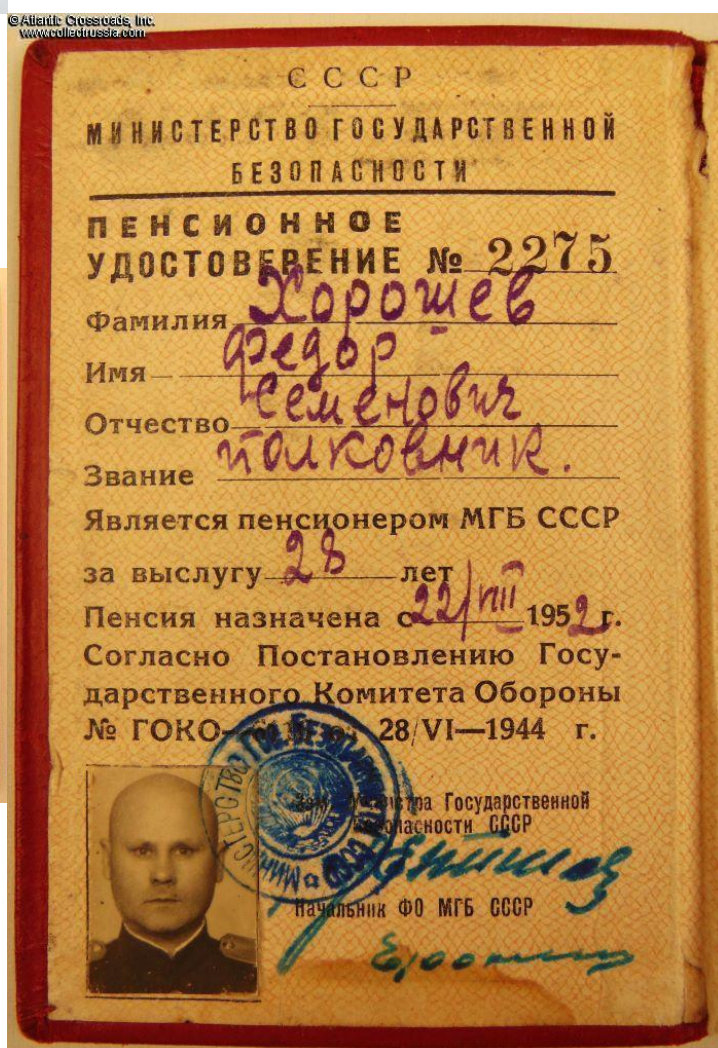 © Atlantic Crossroads, Inc.
www.collectrussia.com
СССР
МИНИСТЕРСТВО ГОСУДАРСТВЕННОЙ
БЕЗОПАСНОСТИ
ПЕНСИОННОЕ
УДОСТОВЕРЕНИЕ № 2275
Фамилия Хорошев
Имя Федор
Отчество Семенович
Звание полковник.
Является пенсионером МГБ СССР
за выслугу 28 лет
Пенсия назначена с 22/VIII 1952 г.
Согласно Постановлению Госу-
дарственного Комитета Обороны
№ ГОКО- 28/VI—1944 г.
МИНИСТЕРСТВО ГОС. БЕЗОПАСНОСТИ СССР
Зам. Министра Государственной
Безопасности СССР
Начальник ФО МГБ СССР